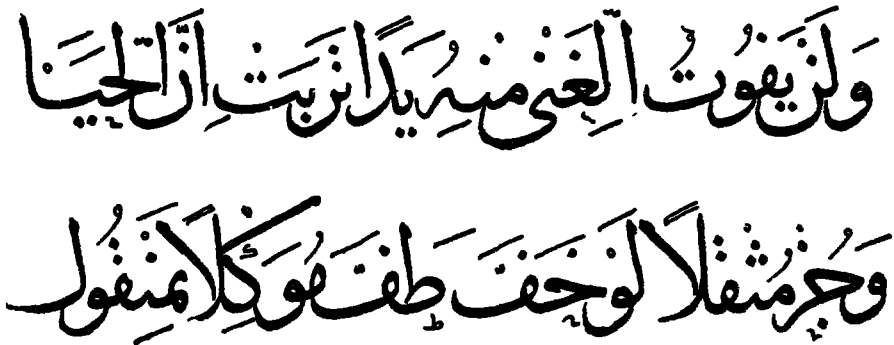 وَلَنْ يَفُوتُ الْغِنَى مِنْهُ يَدًا تَرِبَتْ اِنَّ الْحَيَا
وَجُزْ مُثْقَلاً لَوْ خَفَّ طَفَّ مُوَكِّلاً بِمَنِقُول